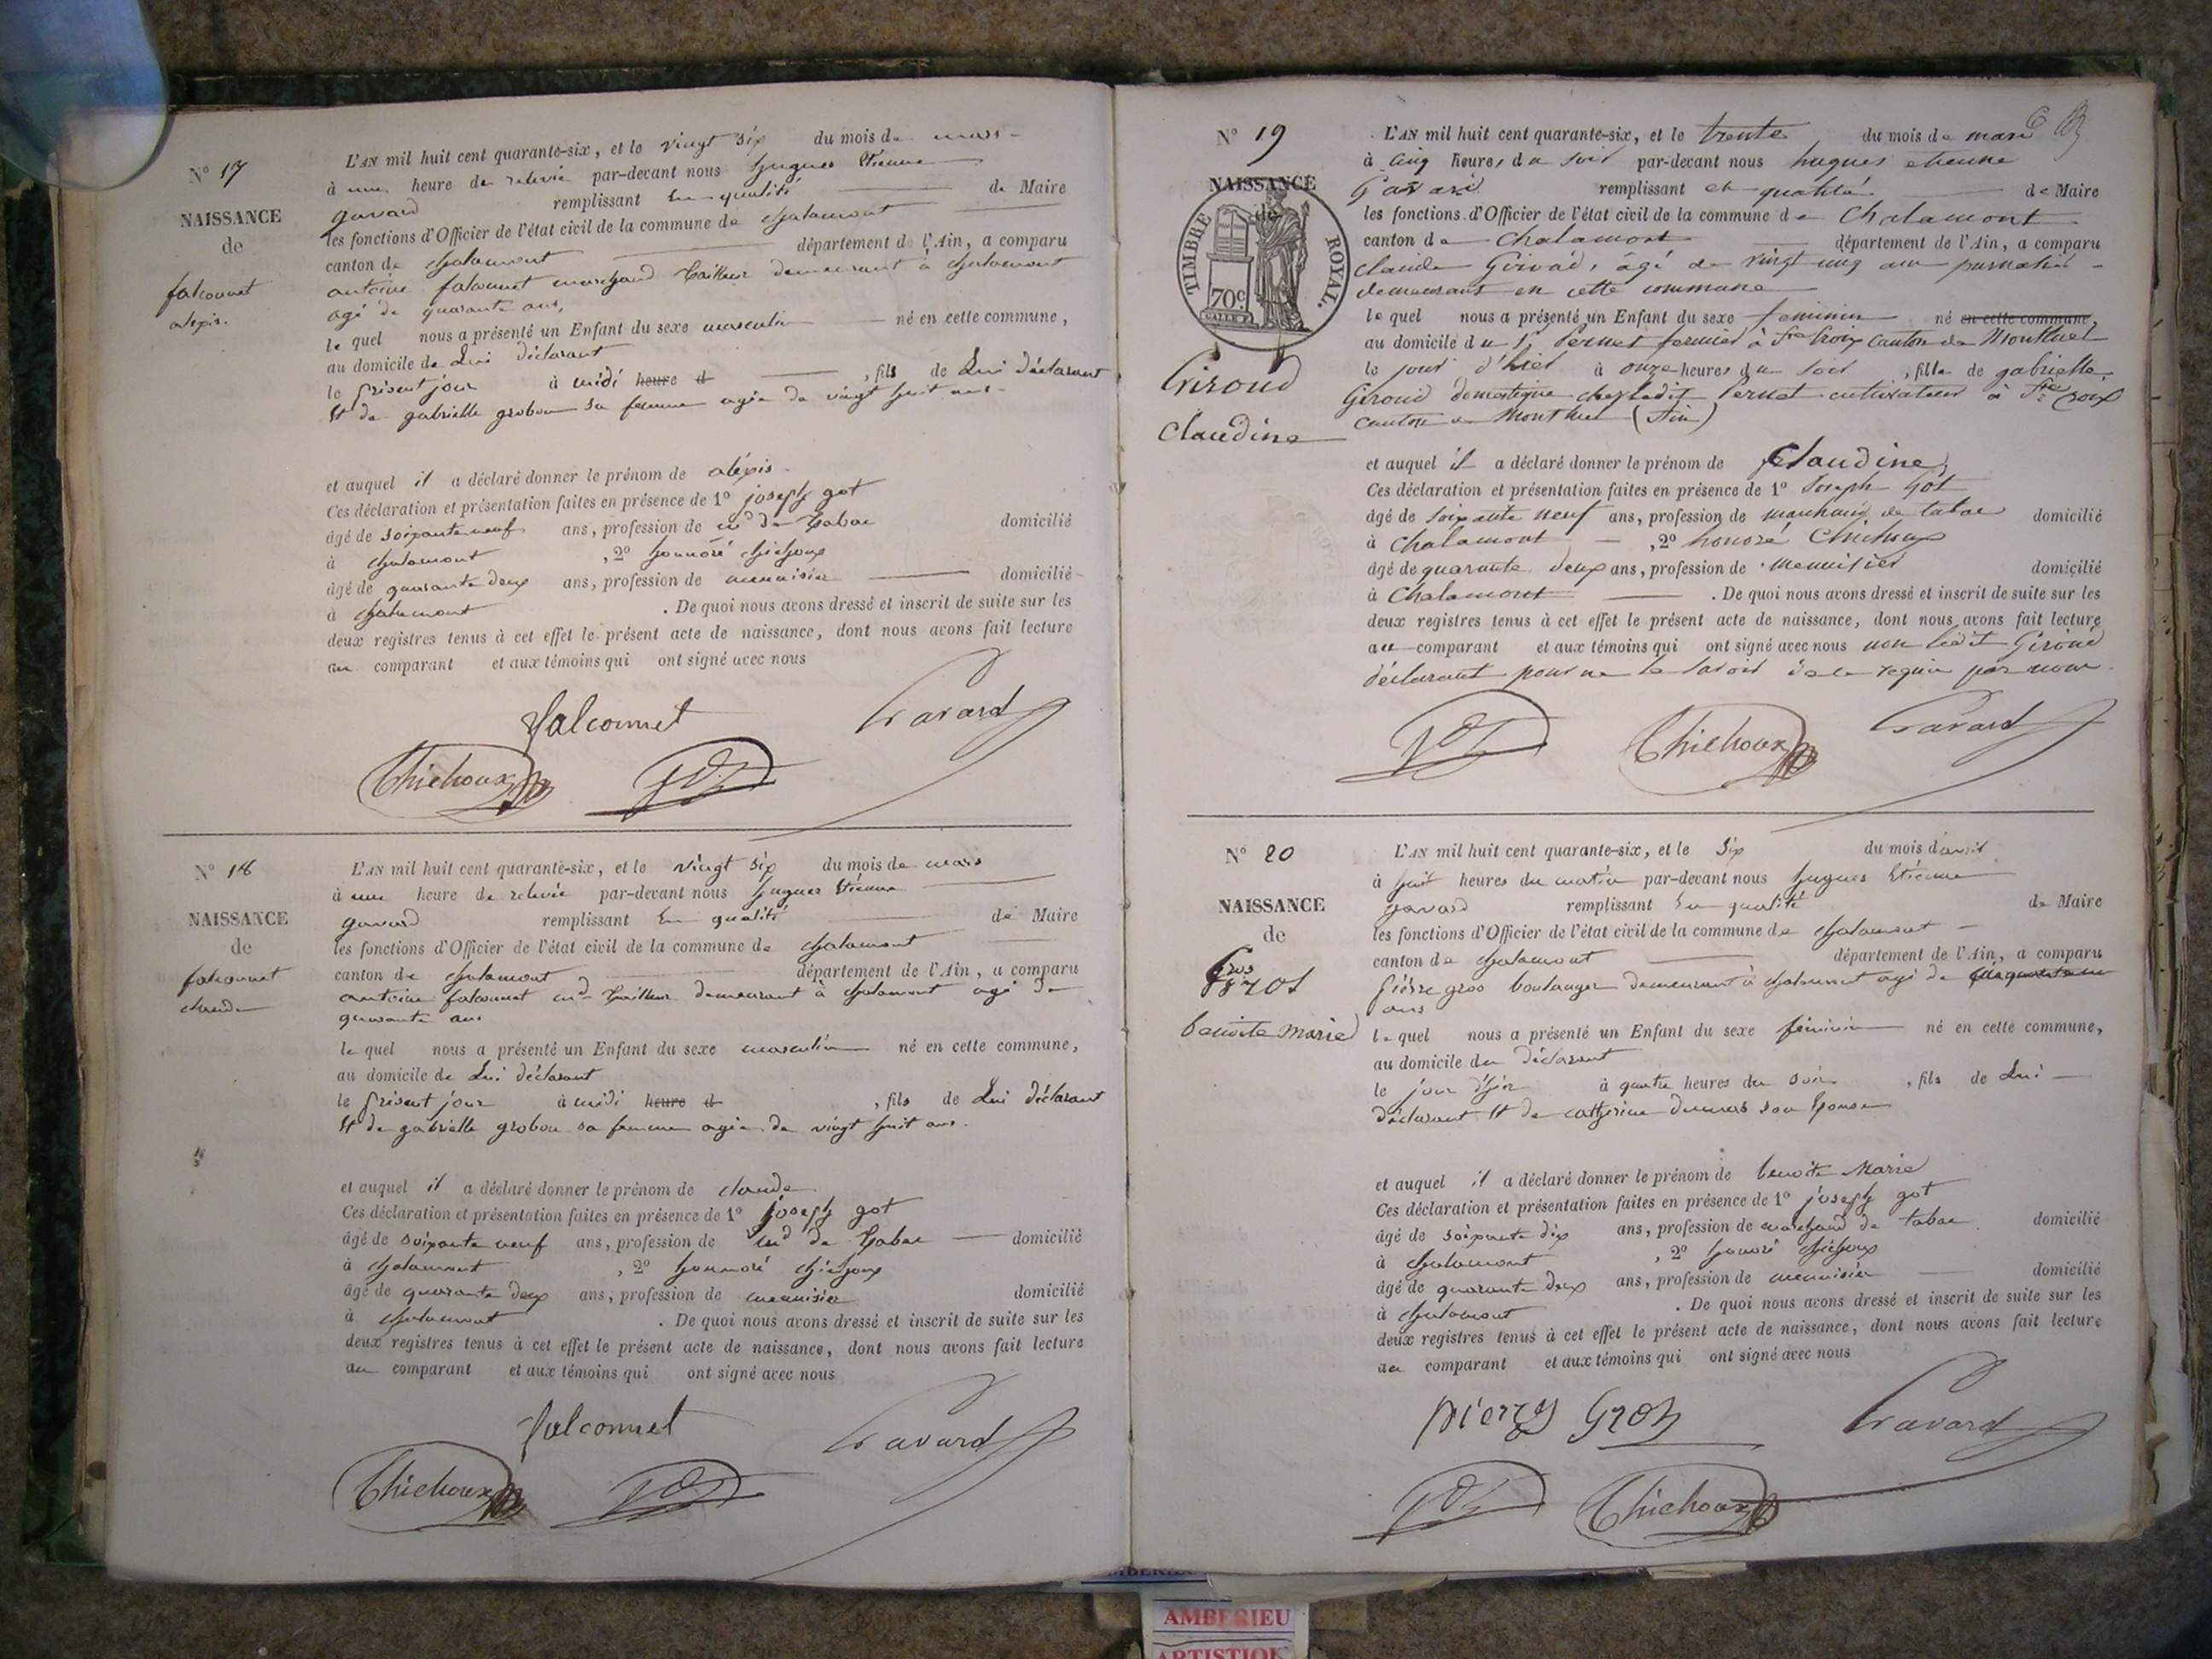 N° 17
NAISSANCE
de
falconnet
alexis.
L'AN mil huit cent quarante-six, et le vingt six du mois de mars
à une heure de relevée par-devant nous hugues Etienne
gavard remplissant En qualité de Maire
les fonctions d'Officier de l'état civil de la commune de chalamont
canton de chalamont département de l'Ain, a comparu
antoine falconnet marchand tailleur demeurant à chalamont
agé de quarante ans,
le quel nous a présenté un Enfant du sexe masculin né en cette commune,
au domicile de Lui déclarant
le présent jour à midi heure d , fils de Lui déclarant
Et de gabrielle grobon sa femme agée de vingt huit ans
et auquel il a déclaré donner le prénom de alexis.
Ces déclaration et présentation faites en présence de 1° joseph got
âgé de soixante neuf ans, profession de md de tabac domicilié
à chalamont , 2° honnoré chichoux
âgé de quarante deux ans, profession de menuisier domicilié
à chalamont . De quoi nous avons dressé et inscrit de suite sur les
deux registres tenus à cet effet le présent acte de naissance, dont nous avons fait lecture
au comparant et aux témoins qui ont signé avec nous
falconnet Gavard
Chichoux Got
N° 18
NAISSANCE
de
falconnet
claude
L'AN mil huit cent quarante-six, et le vingt six du mois de mars
à une heure de relevée par-devant nous hugues Etienne
gavard remplissant En qualité de Maire
les fonctions d'Officier de l'état civil de la commune de chalamont
canton de chalamont département de l'Ain, a comparu
antoine falconnet md tailleur demeurant à chalamont agé de
quarante ans
le quel nous a présenté un Enfant du sexe masculin né en cette commune,
au domicile de Lui déclarant
le présent jour à midi heure d , fils de Lui déclarant
Et de gabrielle grobon sa femme agée de vingt huit ans.
et auquel il a déclaré donner le prénom de claude
Ces déclaration et présentation faites en présence de 1° joseph got
âgé de soixante neuf ans, profession de md de tabac domicilié
à chalamont , 2° honnoré chichoux
âgé de quarante deux ans, profession de menuisier domicilié
à chalamont . De quoi nous avons dressé et inscrit de suite sur les
deux registres tenus à cet effet le présent acte de naissance, dont nous avons fait lecture
au comparant et aux témoins qui ont signé avec nous
falconnet Gavard
Chichoux Got
N° 19
NAISSANCE
de
TIMBRE ROYAL.
70c.
Giroud
Claudine
L'AN mil huit cent quarante-six, et le trente du mois de mars
à cinq heures du soir par-devant nous hugues etienne
Gavard remplissant en qualité de Maire
les fonctions d'Officier de l'état civil de la commune de Chalamont
canton de Chalamont département de l'Ain, a comparu
claude Giroud, âgé de vingt cinq ans journalier
demeurant en cette commune
le quel nous a présenté un Enfant du sexe feminin né en cette commune,
au domicile du Sr Pernet fermier à Ste Croix canton de Montluel
le jour d'hier à onze heures du soir , fille de gabrielle
Giroud domestique chez ledit Pernet cultivateur à Ste Croix
canton de Montluel (Ain)
et auquel il a déclaré donner le prénom de Claudine,
Ces déclaration et présentation faites en présence de 1° Joseph Got
âgé de soixante neuf ans, profession de marchand de tabac domicilié
à Chalamont , 2° honoré Chichoux
âgé de quarante deux ans, profession de menuisier domicilié
à Chalamont . De quoi nous avons dressé et inscrit de suite sur les
deux registres tenus à cet effet le présent acte de naissance, dont nous avons fait lecture
au comparant et aux témoins qui ont signé avec nous non ledit Giroud
déclarant pour ne le savoir de ce requis par nous
Got Chichoux Gavard
N° 20
NAISSANCE
de
Gros
benoite Marie
L'AN mil huit cent quarante-six, et le six du mois d'avril
à huit heures du matin par-devant nous hugues Etienne
gavard remplissant En qualité de Maire
les fonctions d'Officier de l'état civil de la commune de chalamont
canton de chalamont département de l'Ain, a comparu
pierre gros boulanger demeurant à chalamont agé de
ans
le quel nous a présenté un Enfant du sexe féminin né en cette commune,
au domicile du déclarant
le jour d'hier à quatre heures du soir , fils de Lui
déclarant Et de catherine dumas son Epouse
et auquel il a déclaré donner le prénom de benoite Marie
Ces déclaration et présentation faites en présence de 1° joseph got
âgé de soixante dix ans, profession de marchand de tabac domicilié
à chalamont , 2° honoré chichoux
âgé de quarante deux ans, profession de menuisier domicilié
à chalamont . De quoi nous avons dressé et inscrit de suite sur les
deux registres tenus à cet effet le présent acte de naissance, dont nous avons fait lecture
au comparant et aux témoins qui ont signé avec nous
pierre Gros Gavard
Got Chichoux
AMBERIEU